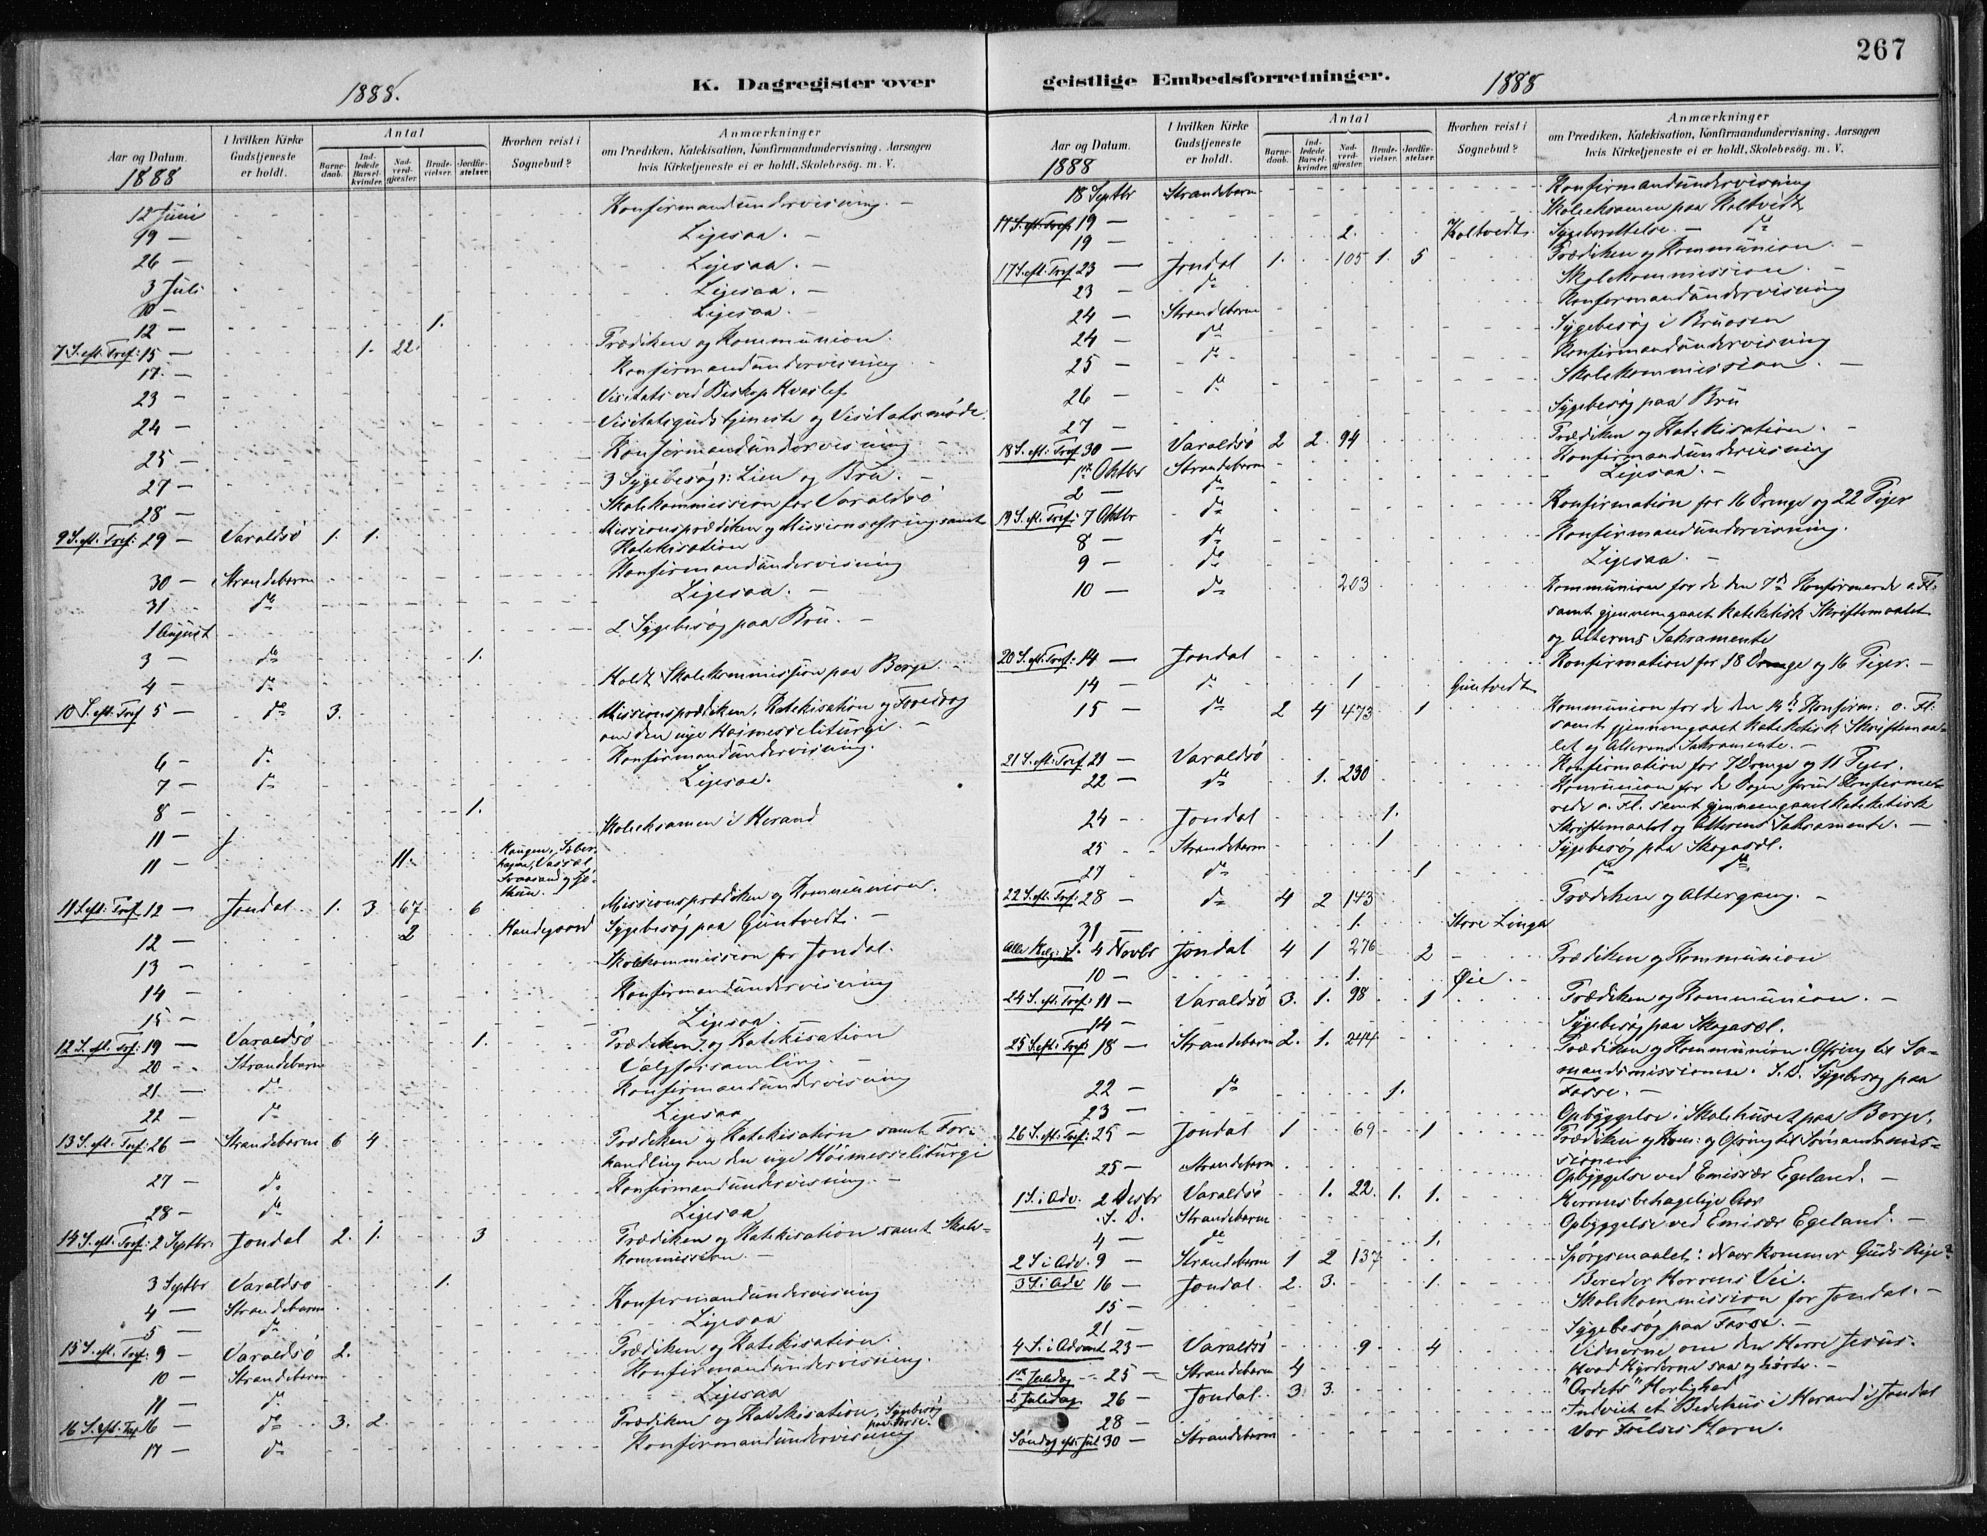 267
1888.
K. Dagregister over
Aar og Datum.
1888
I hvilken Kirke Gudstjeneste er holdt.
Antal
Barnedaab.
Indledede Barselkvinder.
Nadverdgjæster.
Brudevielser.
Jordfæstelser.
Hvorhen reist i Sognebud?
Anmærkninger
om Prædiken, Katekisation, Konfirmandundervisning. Aarsagen
hvis Kirketjeneste ei er holdt. Skolebesög. m. V.
12 Juni Konfirmandundervisning. —
19 — Ligesaa. —
26 — Ligesaa. —
3 Juli Ligesaa. —
10 — Ligesaa. —
12 — 1.
7 S. eft. Tref: 15 — 1. 22. Prædiken og Kommunion.
17 — Konfirmandundervisning
23 — Visitats ved Biskop Hvoslef
24 — Visitatsgudstjeneste og Visitatsmøde.
25 — Konfirmandundervisning
27 — 3 Sygebesøg i Lien og Bru. —
28 — Skolekommission for Varaldsø
9 S. eft. Tref: 29 — Varaldsø 1. 1. Missionsprædiken og Missionsofring samt
Katekisation
30 — Strandebarm Konfirmandundervisning
31 do Ligesaa. —
1 August 2 Sygebesøg paa Bru. —
3 — do 1.
4 — do Holdt Skolekommission paa Berge. —
10 S. eft. Tref 5 — do 3. Missionsprædiken, Katekisation og Foredrag
om den nye Høimesseliturgi.
6 — do Konfirmandundervisning.
7 — do Ligesaa.
8 — 1.
11 — Skoleeksamen i Herand
11 — 11.
11 S. eft. Tref 12 — Jondal 1. 3 67 6 Missionsprædiken og Kommunion.
12 — 2 Sygebesøg paa Guntvedt. —
13 — Skolekommission for Jondal.
14 — Konfirmandundervisning
15 — Ligesaa
12 S. eft. Tref: 19 — Varaldsø 1. Prædiken og Katekisation
20 — Strandebarm Valgforsamling. —
21 — do Konfirmandundervisning
22 — do Ligesaa
13 S. eft. Tref: 26 — Strandebarm 6 4 Prædiken og Katekisation samt For-
handling om den nye Høimesseliturgi
27 — do Konfirmandundervisning. —
28 — do Ligesaa
14 S. eft. Tref: 2 Septbr. Jondal 2. 1. 3 Prædiken og Katekisation samt Skole-
kommission. —
3 Septbr Varaldsø 1.
4 — Strandebarm Konfirmandundervisning
5 — do Ligesaa
15 S. eft. Tref: 9 — Varaldsø 2. Prædiken og Katekisation.
10 — Strandebarm Konfirmandundervisning.
11 — do Ligesaa
16 S. eft. Tref 16 — do 3. 2. Prædiken og Katekisation, Sygebesøg
17 — do Konfirmandundervisning
geistlige Embedsforretninger.
1888
Aar og Datum.
1888
I hvilken Kirke Gudstjeneste er holdt.
Antal
Barnedaab.
Indledede Barselkvinder.
Nadverdgjæster.
Brudevielser.
Jordfæstelser.
Hvorhen reist i Sognebud?
Anmærkninger
om Prædiken, Katekisation, Konfirmandundervisning. Aarsagen
hvis Kirketjeneste ei er holdt. Skolebesög. m. V.
18 Septbr Strandebarm Konfirmandundervisning
17 S. eft. Tref. 19 — Skoleeksamen paa Holtvedt
19 — 2. Holtvedt. Sygeberettelse. — do
17 S. eft. Tref 23 — Jondal 1. 105 1. 5 Prædiken og Kommunion. —
23 — do Skolekommission. —
24 — Strandebarm Konfirmandundervisning
24 — do Sygebesøg i Bruosen
25 — do Konfirmandundervisning
26 — do Skolekommission. —
27 — Sygebesøg paa Bru
18 S. eft. Tref 30 — Varaldsø 2 2. 94 Prædiken og Katekisation. —
1ste Oktbr Strandebarm Konfirmandundervisning
2 — do Ligesaa. —
19 S. eft. Tref: 7 Oktbr do Konfirmation for 16 Drenge og 22 Piger
8 — do Konfirmandundervisning.
9 — do Ligesaa. —
10 — do 203 Kommunion for de den 7de Konfirmerde o. Fl.
samt gjennemgaaet Katekisk Skriftemaalet
og Alterens Sakramente
20 S. eft. Tref: 14 — Jondal Konfirmation for 18 Drenge og 16 Piger. —
14 — do 1 Guntvedt
15 — do 2 4 473 1 Kommunion for de den 14de Konfirm: o. Fl.
samt gjennemgaaet Katekisk Skriftemaa-
let og Alterens Sakramente. —
21 S. eft. Tref 21 — Varaldsø Konfirmation for 7 Drenge og 11 Piger.
22 — do 1. 230 Kommunion for de Dagen forud Konfirme-
rede o. Fl. samt gjennemgaaet Katekisk
24 — Jondal 1. Skriftemaalet og Alterens Sakramente. —
25 — Strandebarm 1 Sygebesøg paa Skogasæl.
27 — do 1 do do
22 S. eft. Tref: 28 — do 4 2 143 Prædiken og Altergang. —
31 — 1. Store Linga
Alle Helg: S. 4 Novbr Jondal 4 1 276 2 Prædiken og Kommunion
10 — 1. Øie
24 S. eft. Tref: 11 — Varaldsø 3. 1. 98 1 Prædiken og Kommunion. —
14 — Sygebesøg paa Skogasæl.
25 S. eft. Tref: 18 — Strandebarm 2. 1. 244 Prædiken og Kommunion. Ofring til Sø-
mandsmissionen. S. D. Sygebesøg paa
22 — do 1. Fosse. —
23 — Opbyggelse i Skolehuset paa Berge.
26 S. eft. Tref: 25 — Jondal 1 69 1 Prædiken og Kom: og Ofring til Sømandsmis-
sionen
25 — Strandebarm Opbyggelse ved Emissær Egeland. —
1 S. i Adv. 2 Desbr Varaldsø 1. 22. 1. 1. Herrens behagelige Aar
S. D. Strandebarm Opbyggelse ved Emisær Egeland. —
4 — do 1.
2 S i Adv. 9 — Strandebarm 1 2 137 Spørgsmaalet: Naar kommer Guds Rige?
3 S. i Adv 16 — Jondal. 2. 3. 1. Bereder Herrens Vei.
15 — Skolekommission for Jondal. —
21 — Sygebesøg paa Fosse. —
4 S. i Advent 23 — Varaldsø 9 4 Vidnerne om den Herre Jesus.
1ste Juledag — 25 — Strandebarm 4 Hvad Hyrderne saa og hørte. —
2 Juledag 26 — Jondal. 3. 3. "Ordets" Herlighed
28 — Indviet et Bedehus i Herand i Jondal
Søndag eft. Jul 30 — Strandebarm Vor Frelses Horn.